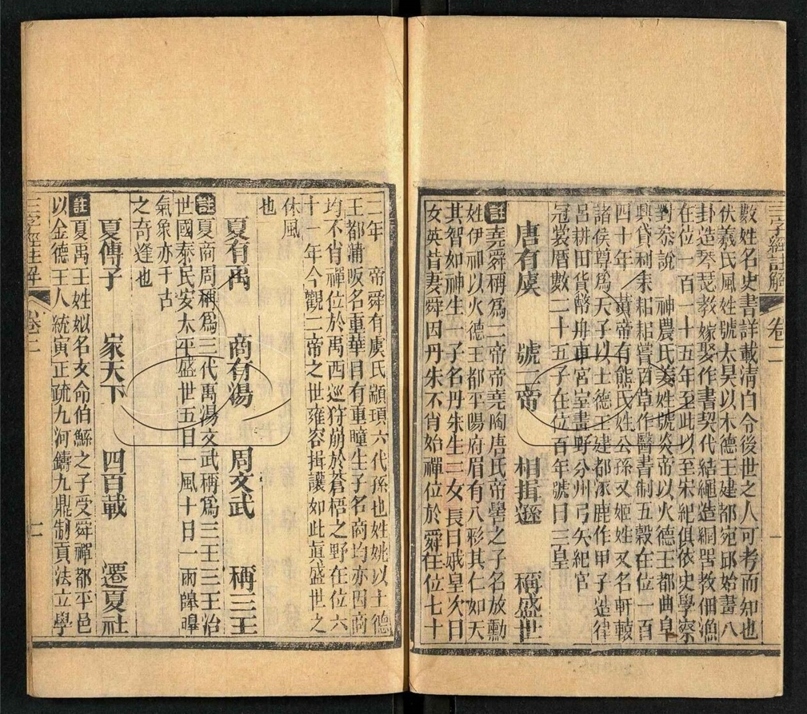 三字經註解 卷二
數姓名史書詳載清白令後世之人可考而知也
伏羲氏風姓號太昊以木德王建都宛邱始畫八
卦造琴瑟教嫁娶作書契代結繩造網罟教佃漁
在位一百一十五年至此以至宋紀俱依史學察
對叅說 神農氏姜姓號炎帝以火德王都曲阜
興貨利耒耜嘗百草作醫書制五穀在位一百
四十年 黃帝有熊氏姓公孫又姬姓又名軒轅
諸侯尊為天子以土德王建都涿鹿作甲子造律
呂耕田貨幣舟車宮室畫野分州弓矢紀官
冠裳曆數二十五子在位百年號曰三皇
唐有虞 號二帝 相揖遜 稱盛世
註堯舜稱爲二帝帝堯陶唐氏帝嚳之子名放勳
姓伊祁以火德王都平陽府眉有八彩其仁如天
其智如神生一子名丹朱生二女長曰娥皇次曰
女英皆妻舜因丹朱不肖始禪位於舜在位七十
二年 帝舜有虞氏顓頊六代孫也姓姚以土德
王都蒲阪名重華目有重瞳生子名商均亦因商
均不肖禪位於禹西巡狩崩於蒼梧之野在位六
十一年今觀二帝之世雍容揖讓如此真盛世之
休風
也
夏有禹 商有湯 周文武 稱三王
註夏商周稱爲三代禹湯文武稱爲三王三王治
世國泰民安太平盛世五日一風十日一雨皞皞
氣象亦千古
之奇逢也
夏傳子 家天下 四百載 遷夏社
註夏禹王姓姒名文命伯鯀之子受舜禪都平邑
以金德王人統寅正疏九河鑄九鼎制貢法立學
三字經註解 卷二